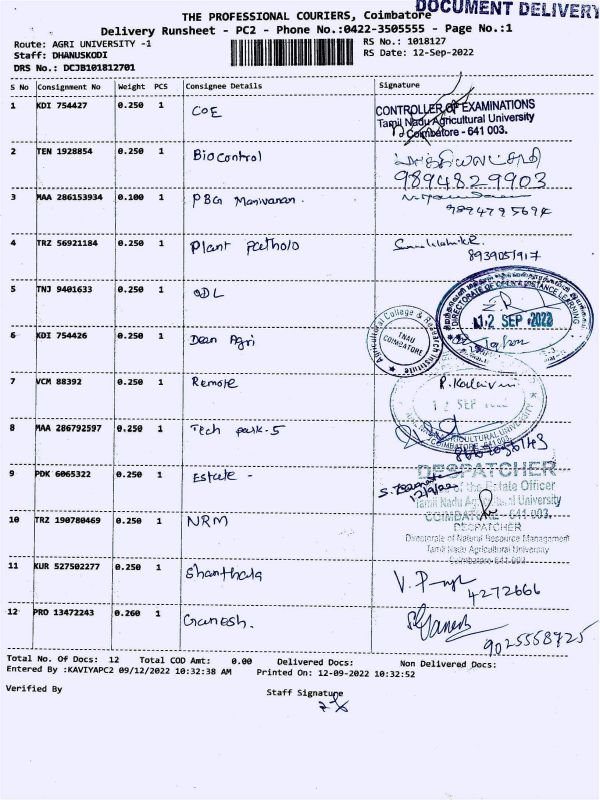 DOCUMENT DELIVERY
THE PROFESSIONAL COURIERS, Coimbatore
Delivery Runsheet - PC2 - Phone No.:0422-3505555 - Page No.:1
Route: AGRI UNIVERSITY -1
RS No.: 1018127
Staff: DHANUSKODI
RS Date: 12-Sep-2022
DRS No.: DCJB101812701
S No Consignment No Weight PCS Consignee Details Signature
1 KDI 754427 0.250 1 COE
CONTROLLER OF EXAMINATIONS
Tamil Nadu Agricultural University
Coimbatore - 641 003.
2 TEN 1928854 0.250 1 Biocontrol
9894829903
3 MAA 286153934 0.100 1 PBG Manivanan.
9894795694
4 TRZ 56921184 0.250 1 Plant Patholo
8939051917
5 TNJ 9401633 0.250 1 ODL
DIRECTORATE OF OPEN & DISTANCE LEARNING
12 SEP 2022
6 KDI 754426 0.250 1 Dean Agri
Agricultural College & Research Institute
TNAU
COIMBATORE
7 VCM 88392 0.250 1 Remote
12 SEP
8 MAA 286792597 0.250 1 Tech park-5
AGRICULTURAL UNIVERSITY
COIMBATORE-641 003.
9 PDK 6065322 0.250 1 Estate -
12/9/22
DESPATCHER
of the Estate Officer
Tamil Nadu Agricultural University
COIMBATORE - 641 003.
10 TRZ 190780469 0.250 1 NRM
DESPATCHER
Directorate of Natural Resource Management
Tamil Nadu Agricultural University
Coimbatore-641 003
11 KUR 527502277 0.250 1 Shanthala
4272666
12 PRO 13472243 0.260 1 Ganesh.
S.Ganesh
9025558925
Total No. Of Docs: 12 Total COD Amt: 0.00 Delivered Docs: Non Delivered Docs:
Entered By :KAVIYAPC2 09/12/2022 10:32:38 AM Printed On: 12-09-2022 10:32:52
Verified By
Staff Signature